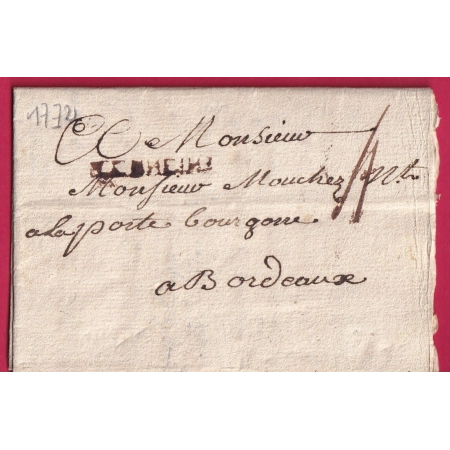 1772
A Monsieur
Monsieur Mouchez Nt
a la porte bourgone
a Bordeaux